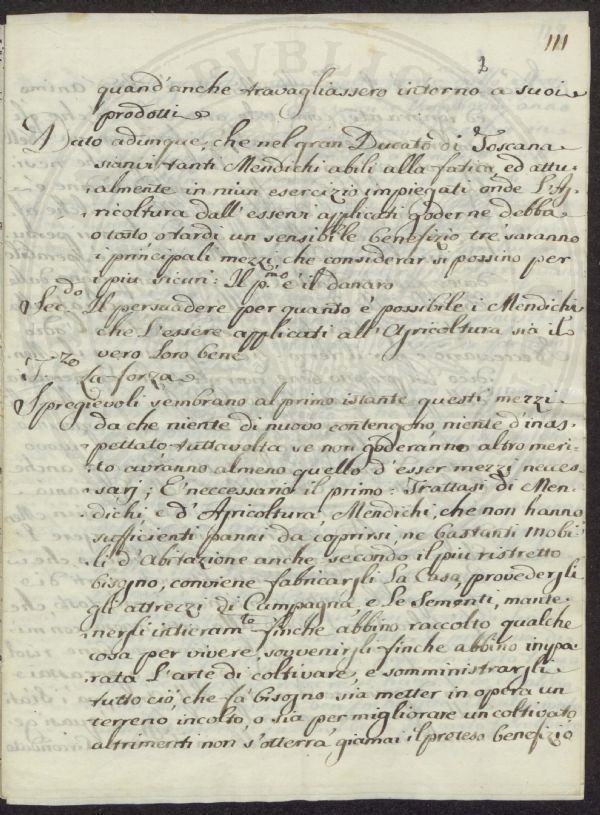 111
quand'anche travagliassero intorno a suoi
prodotti
Dato adunque, che nel gran Ducato di Toscana
sianvi tanti Mendichi abili alla fatica, ed attu-
almente in niun esercizio impiegati onde l'Ag-
ricoltura dall'esservi applicati goderne debba
o tosto o tardi un sensibile benefizio trè saranno
i principali mezzi, che considerar si possino per
i più sicuri: Il p.mo è il danaro
Sec.do Il persuadere per quanto è possibile i Mendichi
che l'essere applicati all'Agricoltura sia il
vero loro bene
T.zo La forza
Spregievoli sembrano al primo istante questi mezzi
da che niente di nuovo contengono niente d'inas-
pettato tuttavolta se non goderanno altro meri-
to avranno almeno quello d'esser mezzi neces-
sarj; E' neccessario il primo: Trattasi di Men-
dichi e d'Agricoltura, Mendichi, che non hanno
sufficienti panni da coprirsi, ne bastanti mobi-
li d'Abitazione anche secondo il più ristretto
bisogno, conviene fabricargli la Casa, provedergli
gli attrezzi di Campagna, e le Sementi, mante-
nergli intieram.te finche abbino raccolto qualche
cosa per vivere, sovvenirgli finche abbino impa-
rata l'arte di coltivare, e somministrargli
tutto ciò, che fà bisogno sia metter in opera un
terreno incolto, o sia per migliorare un coltivato
altrimenti non s'otterrà giamai il preteso benefizio